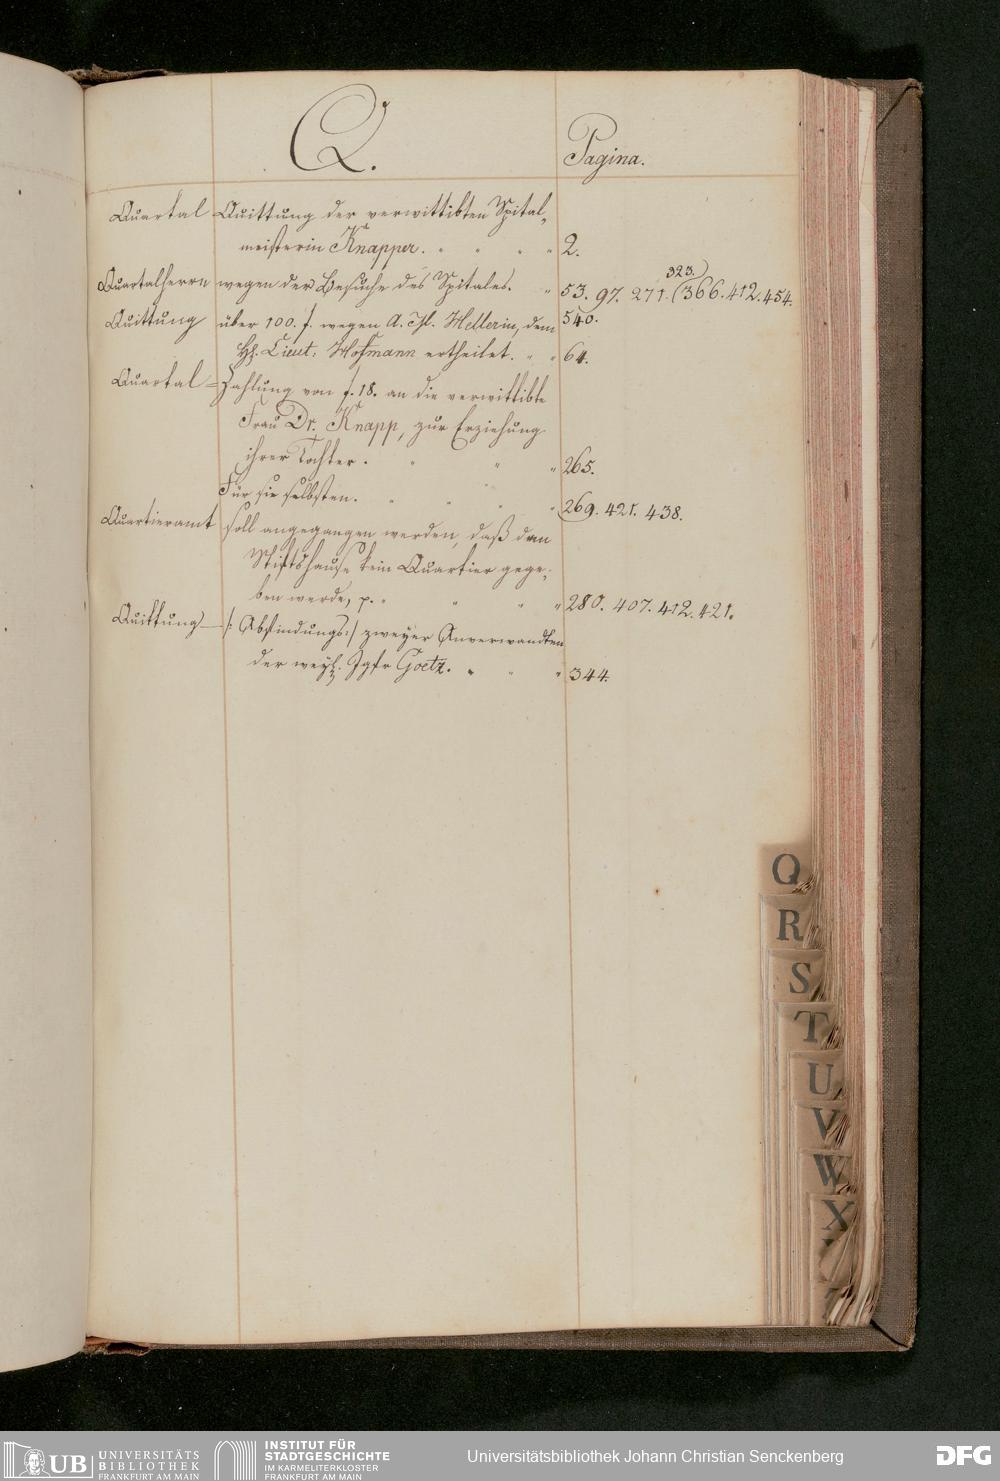 Q.
Pagina.
Quartal Quittung der verwittibten Spital„
meisterin Knapper. " " " " 2.
323.
Quartalherrn wegen der Besuche des Spitales. " 53. 97. 271. (366. 412. 454.
Quittung über 100. f. wegen A. Hellerin, dem 540.
H. Lieut: Hofmann ertheilet. " " 64.
Quartal = Zahlung von f. 18. an die verwittibte
Frau Dr. Knapp, zur Erziehung
ihrer Tochter. " " " 265.
Für sie selbsten. " " " " 269. 421. 438.
Quartieramt soll angegangen werden, daß dem
Stiftshause kein Quartier gege„
ben werde, p. " " " " 280. 407. 412. 421.
Quittung — /: Abfindungs:/ zweyer Anverwandten
der weyl. Jgfr Goetz. " " " 344.
Q
R
S
T
U
V
W
X
UB UNIVERSITÄTS
BIBLIOTHEK
FRANKFURT AM MAIN
INSTITUT FÜR
STADTGESCHICHTE
IM KARMELITERKLOSTER
FRANKFURT AM MAIN
Universitätsbibliothek Johann Christian Senckenberg
DFG